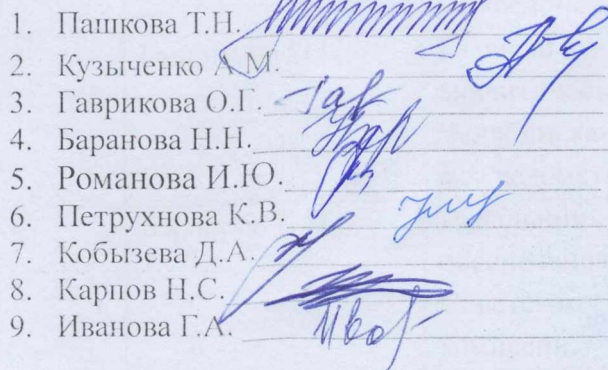 1. Пашкова Т.Н.
2. Кузыченко А.М.
3. Гаврикова О.Г.
4. Баранова Н.Н.
5. Романова И.Ю.
6. Петрухнова К.В.
7. Кобызева Д.А.
8. Карпов Н.С.
9. Иванова Г.А.